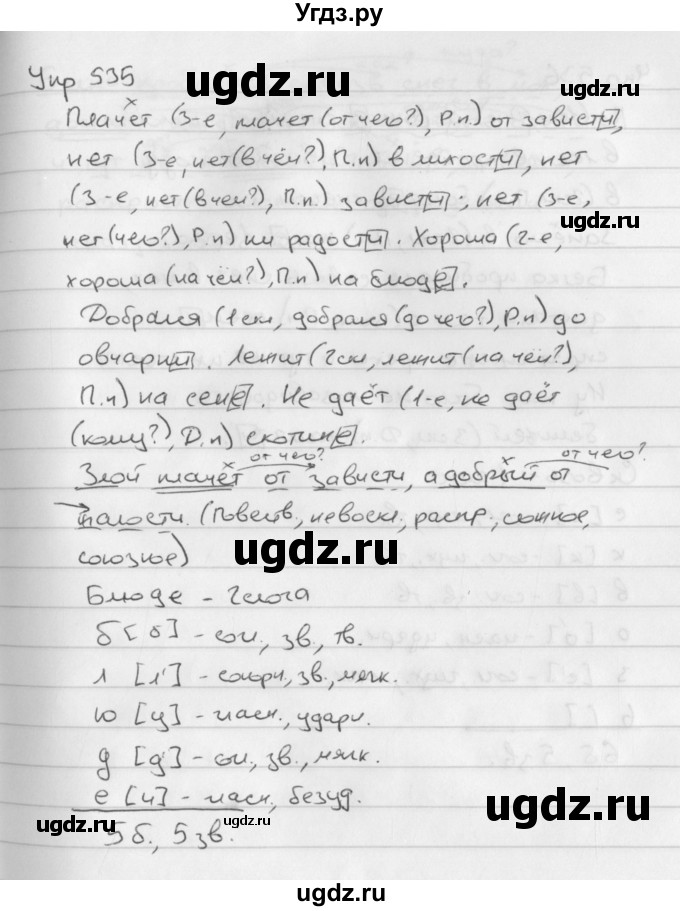 Угдз.ру
Упр 535
Плачет (3-е, плачет (от чего?), Р.п) от завист[и],
нет (3-е, нет (в чём?), П.п) в лихост[и], нет
(3-е, нет (в чем?), П.п.) завист[и]; нет (3-е,
нет (чего?), Р.п) ни радост[и]. Хороша (2-е,
хороша (на чём?), П.п) на блюд[е].
Добрался (1 скл, добрался (до чего?), Р.п) до
овчарн[и]. Лежит (2 скл, лежит (на чём?),
П.п) на сен[е]. Не даёт (1-е, не даёт
(кому?), Д.п) скотин[е].
от чего? от чего?
Злой плачет от зависти, а добрый от
жалости. (Повеств, невоскл, распр., сложное,
союзное)
Блюде - 2 слога
б [б] - согл, зв., тв.
л [л'] - сонорн, зв., мягк.
ю [у] - гласн., ударн.
д [д'] - согл, зв., мягк.
е [и] - гласн, безуд.
5 б., 5 зв.
ugdz.ru
ugdz.ru
ugdz.ru
ugdz.ru
ugdz.ru
ugdz.ru
ugdz.ru
ugdz.ru
ugdz.ru
ugdz.ru
ugdz.ru
ugdz.ru